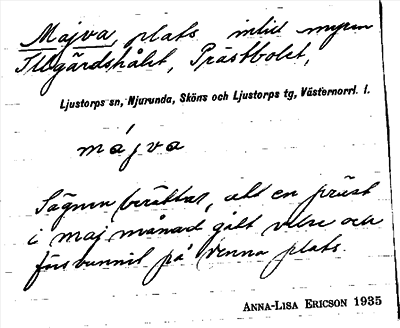 Majva, plats intill myren
Tillgärdshålet, Prästbolet,
Ljustorps sn, Njurunda, Sköns och Ljustorps tg, Västernorrl. l.
májva
Sägnen berättar, att en präst
i maj månad gått vilse och
försvunnit på denna plats.
ANNA-LISA ERICSON 1935